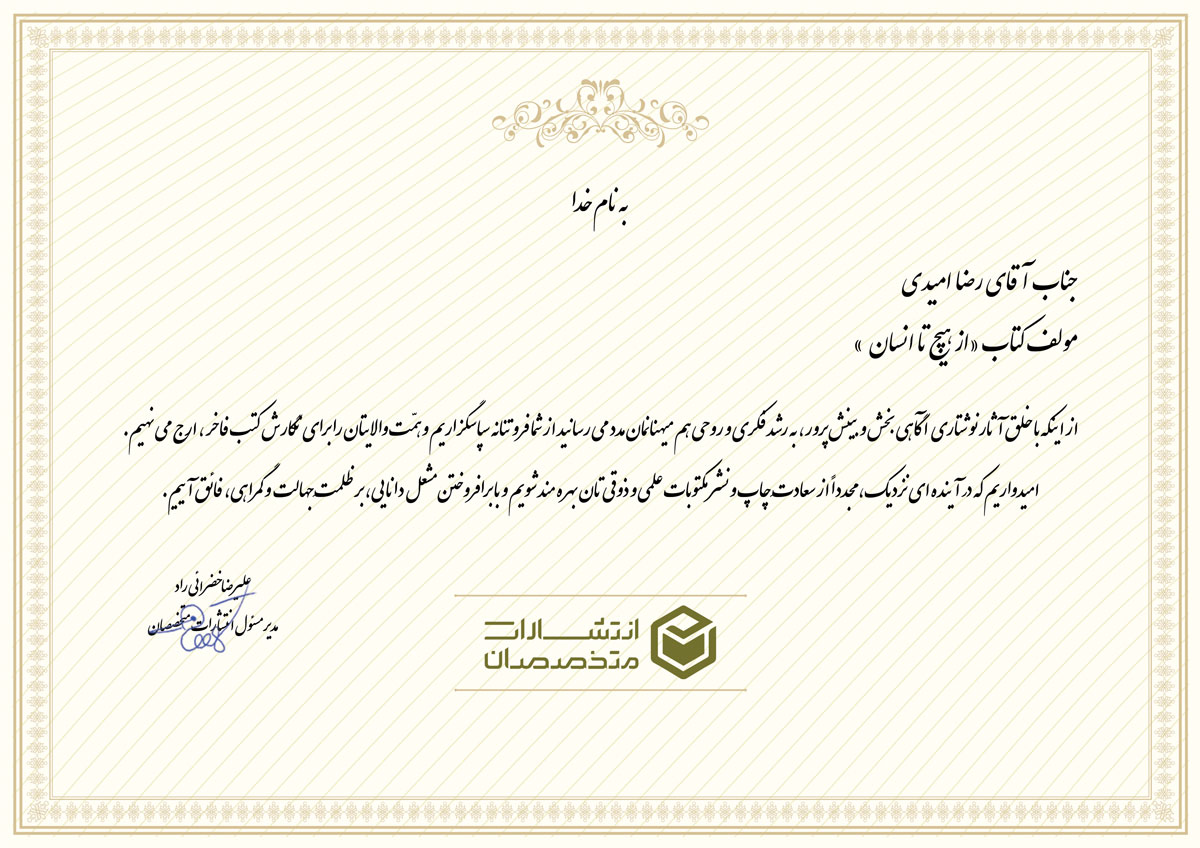 به نام خدا
جناب آقای رضا امیدی
مولف کتاب «از هیچ تا انسان »
از اینکه با خلق آثار نوشتاری آگاهی بخش و بینش پرور، به رشد فکری و روحی هم میهنانمان مدد می رسانید از شما فروتنانه سپاسگزاریم و همّت والایتان را برای نگارش کتب فاخر ، ارج می نهیم.
امیدواریم که در آینده ای نزدیک، مجدداً از سعادت چاپ و نشر مکتوبات علمی و ذوقی تان بهره مند شویم و با برافروختن مشعل دانایی، بر ظلمت جهالت و گمراهی، فائق آییم .
علیرضا خضرائی راد
مدیر مسئول انتشارات متخصصان
انتشارات
متخصصان